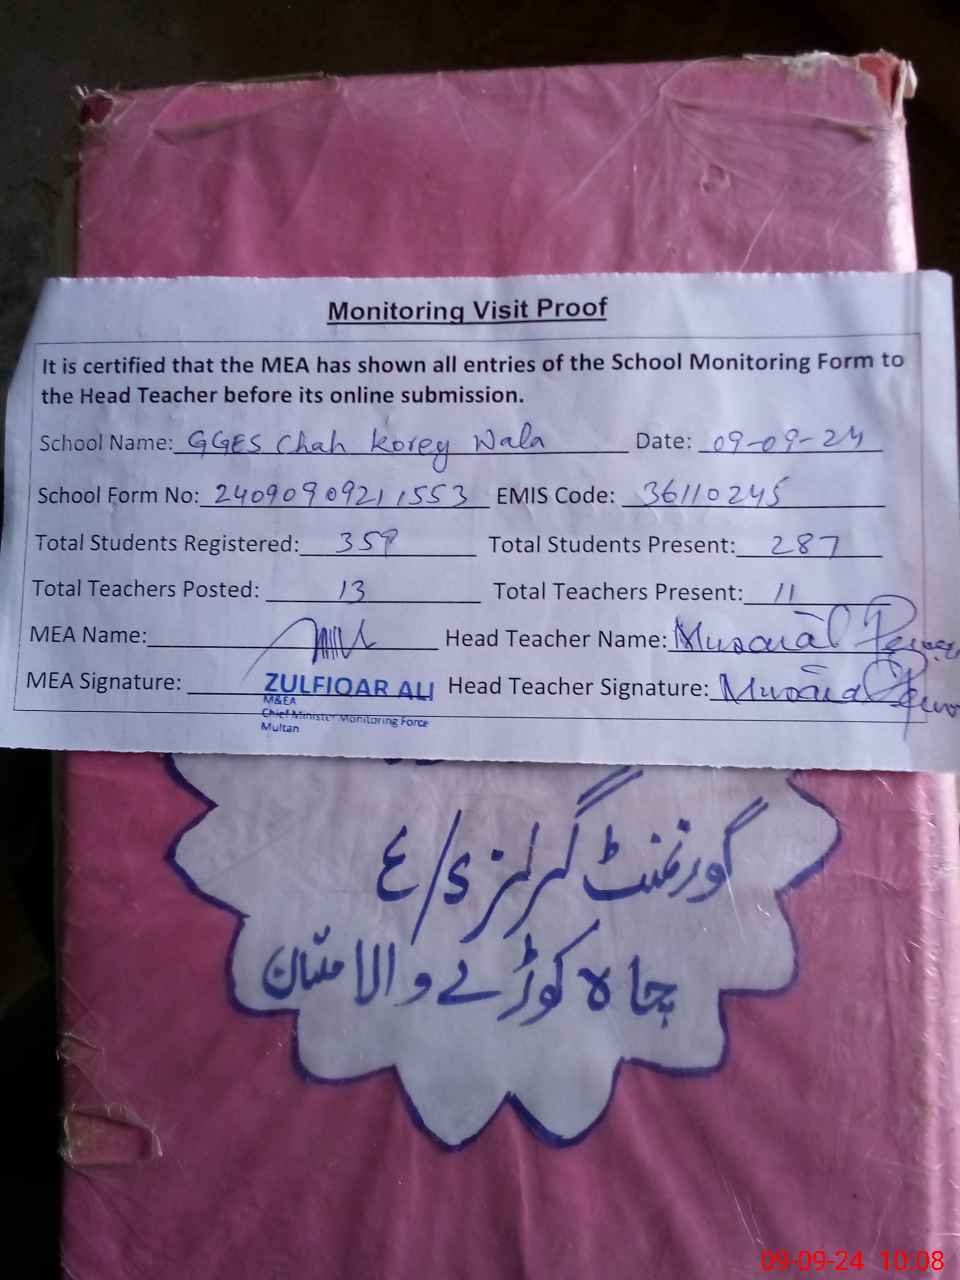 Monitoring Visit Proof
It is certified that the MEA has shown all entries of the School Monitoring Form to
the Head Teacher before its online submission.
School Name: GGES Chah Korey Wala Date: 09-09-24
School Form No: 24090909211553 EMIS Code: 36110245
Total Students Registered: 359 Total Students Present: 287
Total Teachers Posted: 13 Total Teachers Present: 11
MEA Name: Head Teacher Name: Musarat
MEA Signature: ZULFIQAR ALI Head Teacher Signature: Musarat
M&EA
Chief Minister Monitoring Force
Multan
گورنمنٹ گرلز ای/ع
چاہ کوڑے والا ملتان
09-09-24 10:08